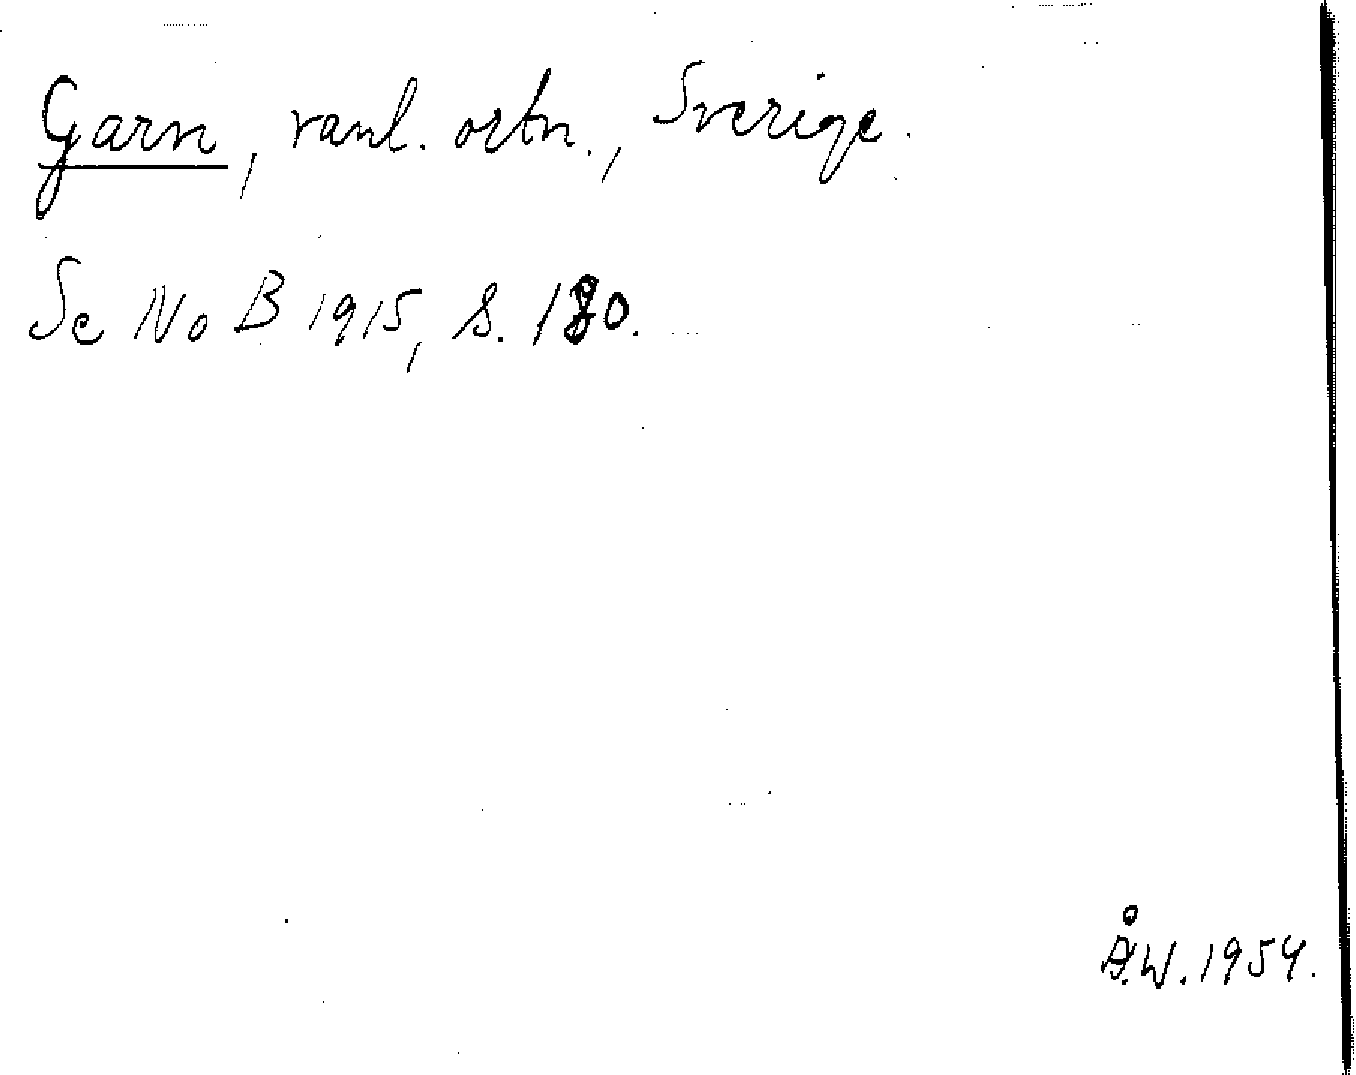 Garn, vanl. ortn., Sverige.
Se NoB 1915, s. 180.
Å.W. 1954.